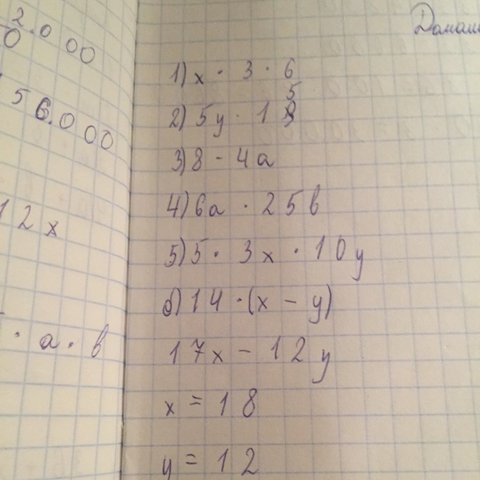 2.000
0
56.000
12x
· a · в
Домаш
1) x · 3 · 6
2) 5y · 15
3) 8 · 4a
4) 6a · 25в
5) 5 · 3x · 10y
6) 14 · (x - y)
17x - 12y
x = 18
y = 12